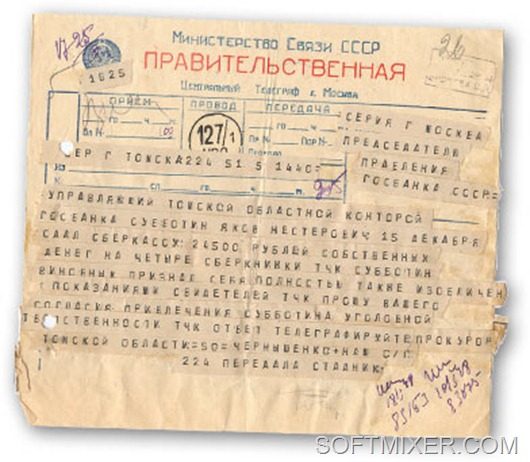 17-25
26
1625
Министерство Связи СССР
ПРАВИТЕЛЬСТВЕННАЯ
Центральный Телеграф г. Москва
ПРИЁМ
ПРОВОД
ПЕРЕДАЧА
го ч. м.
Бл №
127/1
го ч. м.
Пор №
СЕРИЯ Г МОСКВА
ПРЕДСЕДАТЕЛЮ
ПРАВЛЕНИЯ
ГОСБАНКА СССР=
СЕР Г ТОМСКА 224 51 5 1440=
ИЗ
сл. го ч. м.
УПРАВЛЯЮЩИЙ ТОМСКОЙ ОБЛАСТНОЙ КОНТОРОЙ
ГОСБАНКА СУББОТИН ЯКОВ НЕСТЕРОВИЧ 15 ДЕКАБРЯ
СДАЛ СБЕРКАССУ 24500 РУБЛЕЙ СОБСТВЕННЫХ
ДЕНЕГ НА ЧЕТЫРЕ СБЕРКНИЖКИ ТЧК СУББОТИН
ВИНОВНЫМ ПРИЗНАЛ СЕБЯ ПОЛНОСТЬЮ ТАКЖЕ ИЗОБЛИЧЕН
ПОКАЗАНИЯМИ СВИДЕТЕЛЕЙ ТЧК ПРОШУ ВАШЕГО
СОГЛАСИЯ ПРИВЛЕЧЕНИЯ СУББОТИНА УГОЛОВНОЙ
ТВЕТСТВЕННОСТИ ТЧК ОТВЕТ ТЕЛЕГРАФИРУЙТЕ ПРОКУРОР
ТОМСКОЙ ОБЛАСТИ=50=ЧЕРНЫШЕНКО+
224 ПЕРЕДАЛА
SOFTMIXER.COM